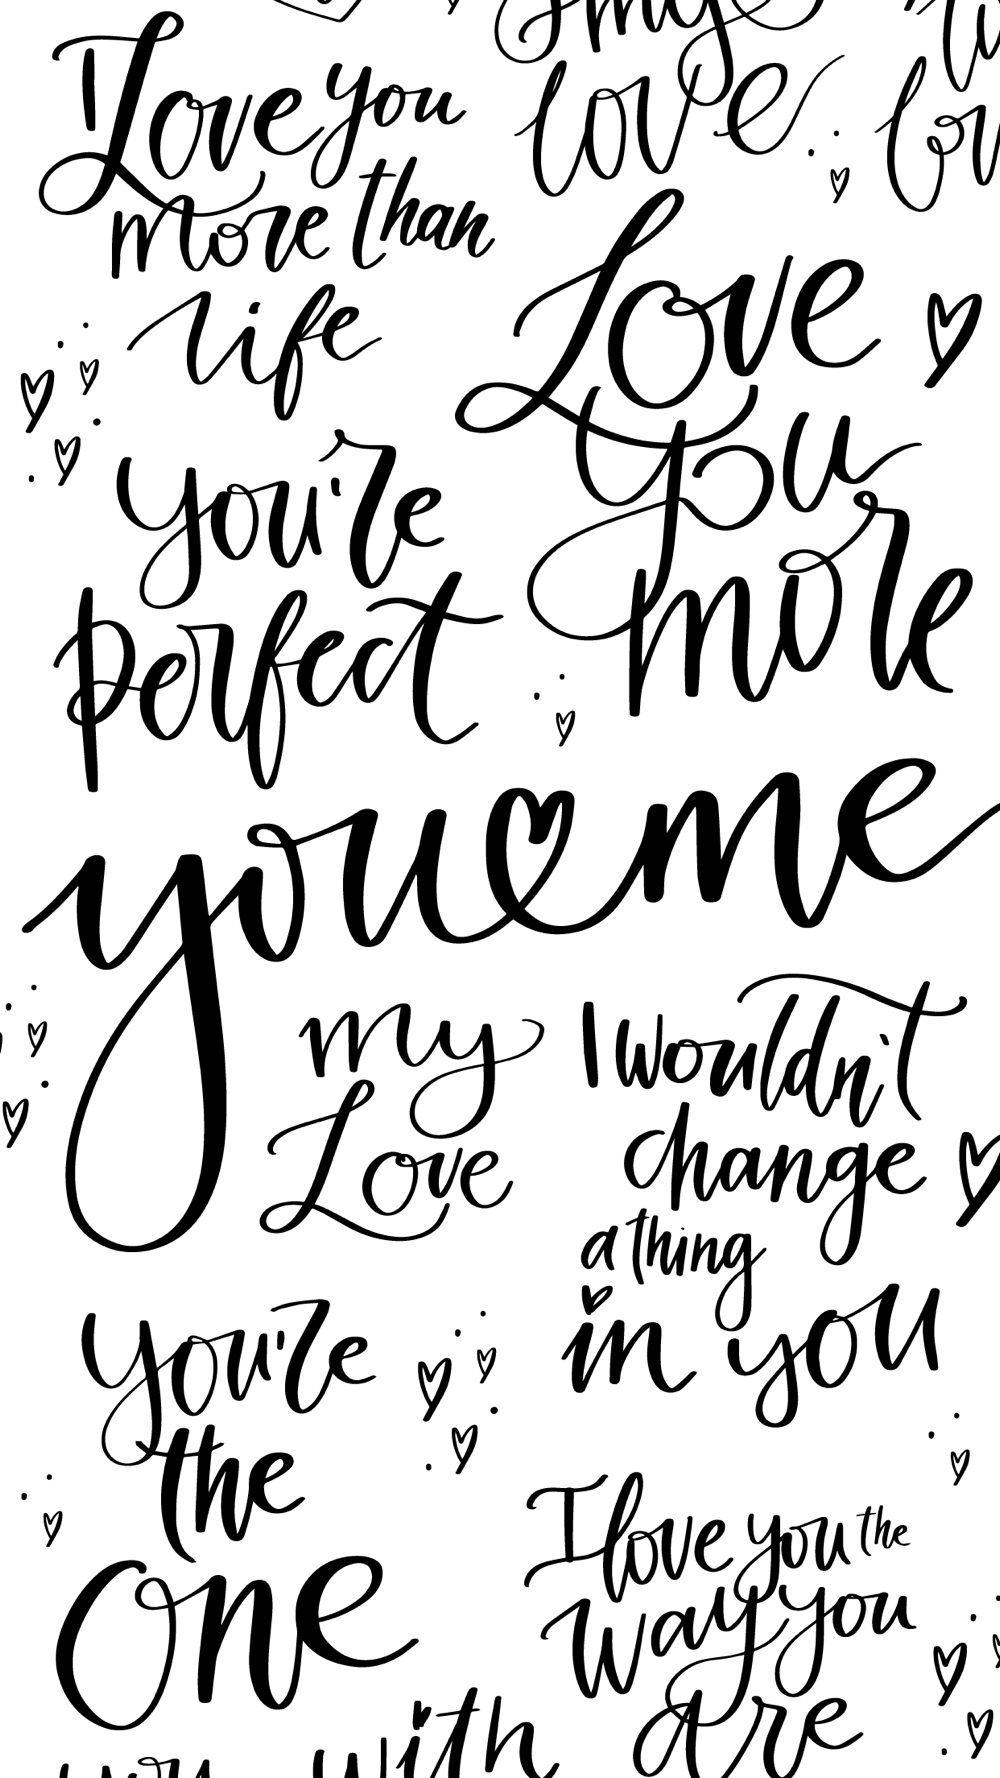 my
love
I Love you
more than
life
Love
you
more
you're
perfect
you me
my
Love
I wouldn't
change
a thing
in you
you're
the
One
I love you the
way you
are
you with